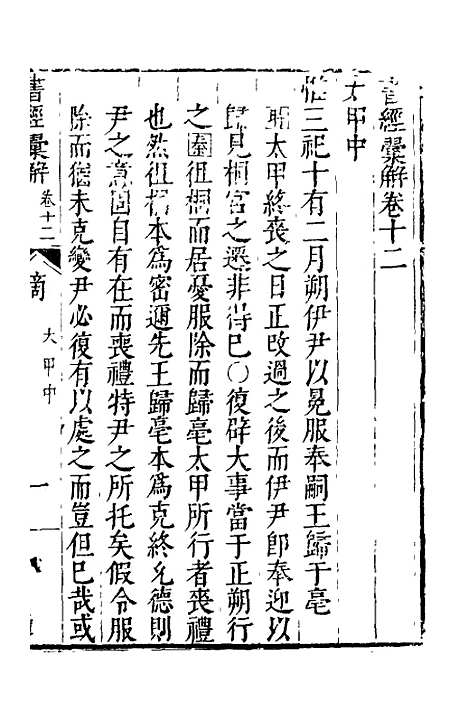 書經彚解卷十二
太甲中
惟三祀十有二月朔伊尹以冕服奉嗣王歸于亳
太甲終喪之日正改過之後而伊尹卽奉迎以
歸見桐宮之遷非得已〇復辟大事當于正朔行
之𡈽徂桐而居憂服除而歸亳太甲所行者喪禮
也然徂桐本爲密邇先王歸亳本爲克終允德則
尹之意固自有在而喪禮特尹之所托矣假令服
除而猶未克變尹必復有以處之而豈但已哉或
書經彚解 卷十二 商 太甲中 一